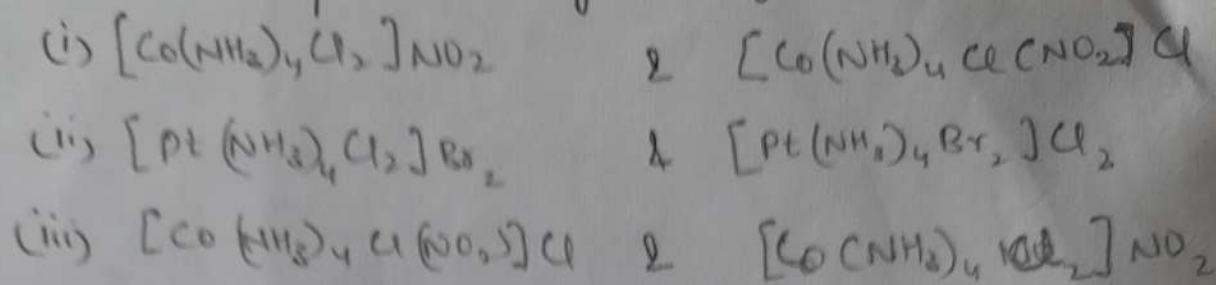 (i) [Co(NH3)4Cl2]NO2 & [Co(NH3)4Cl(NO2]Cl
(ii) [Pt(NH3)4Cl2]Br2 & [Pt(NH3)4Br2]Cl2
(iii) [Co(NH3)4Cl(NO2)]Cl & [Co(NH3)4Cl2]NO2